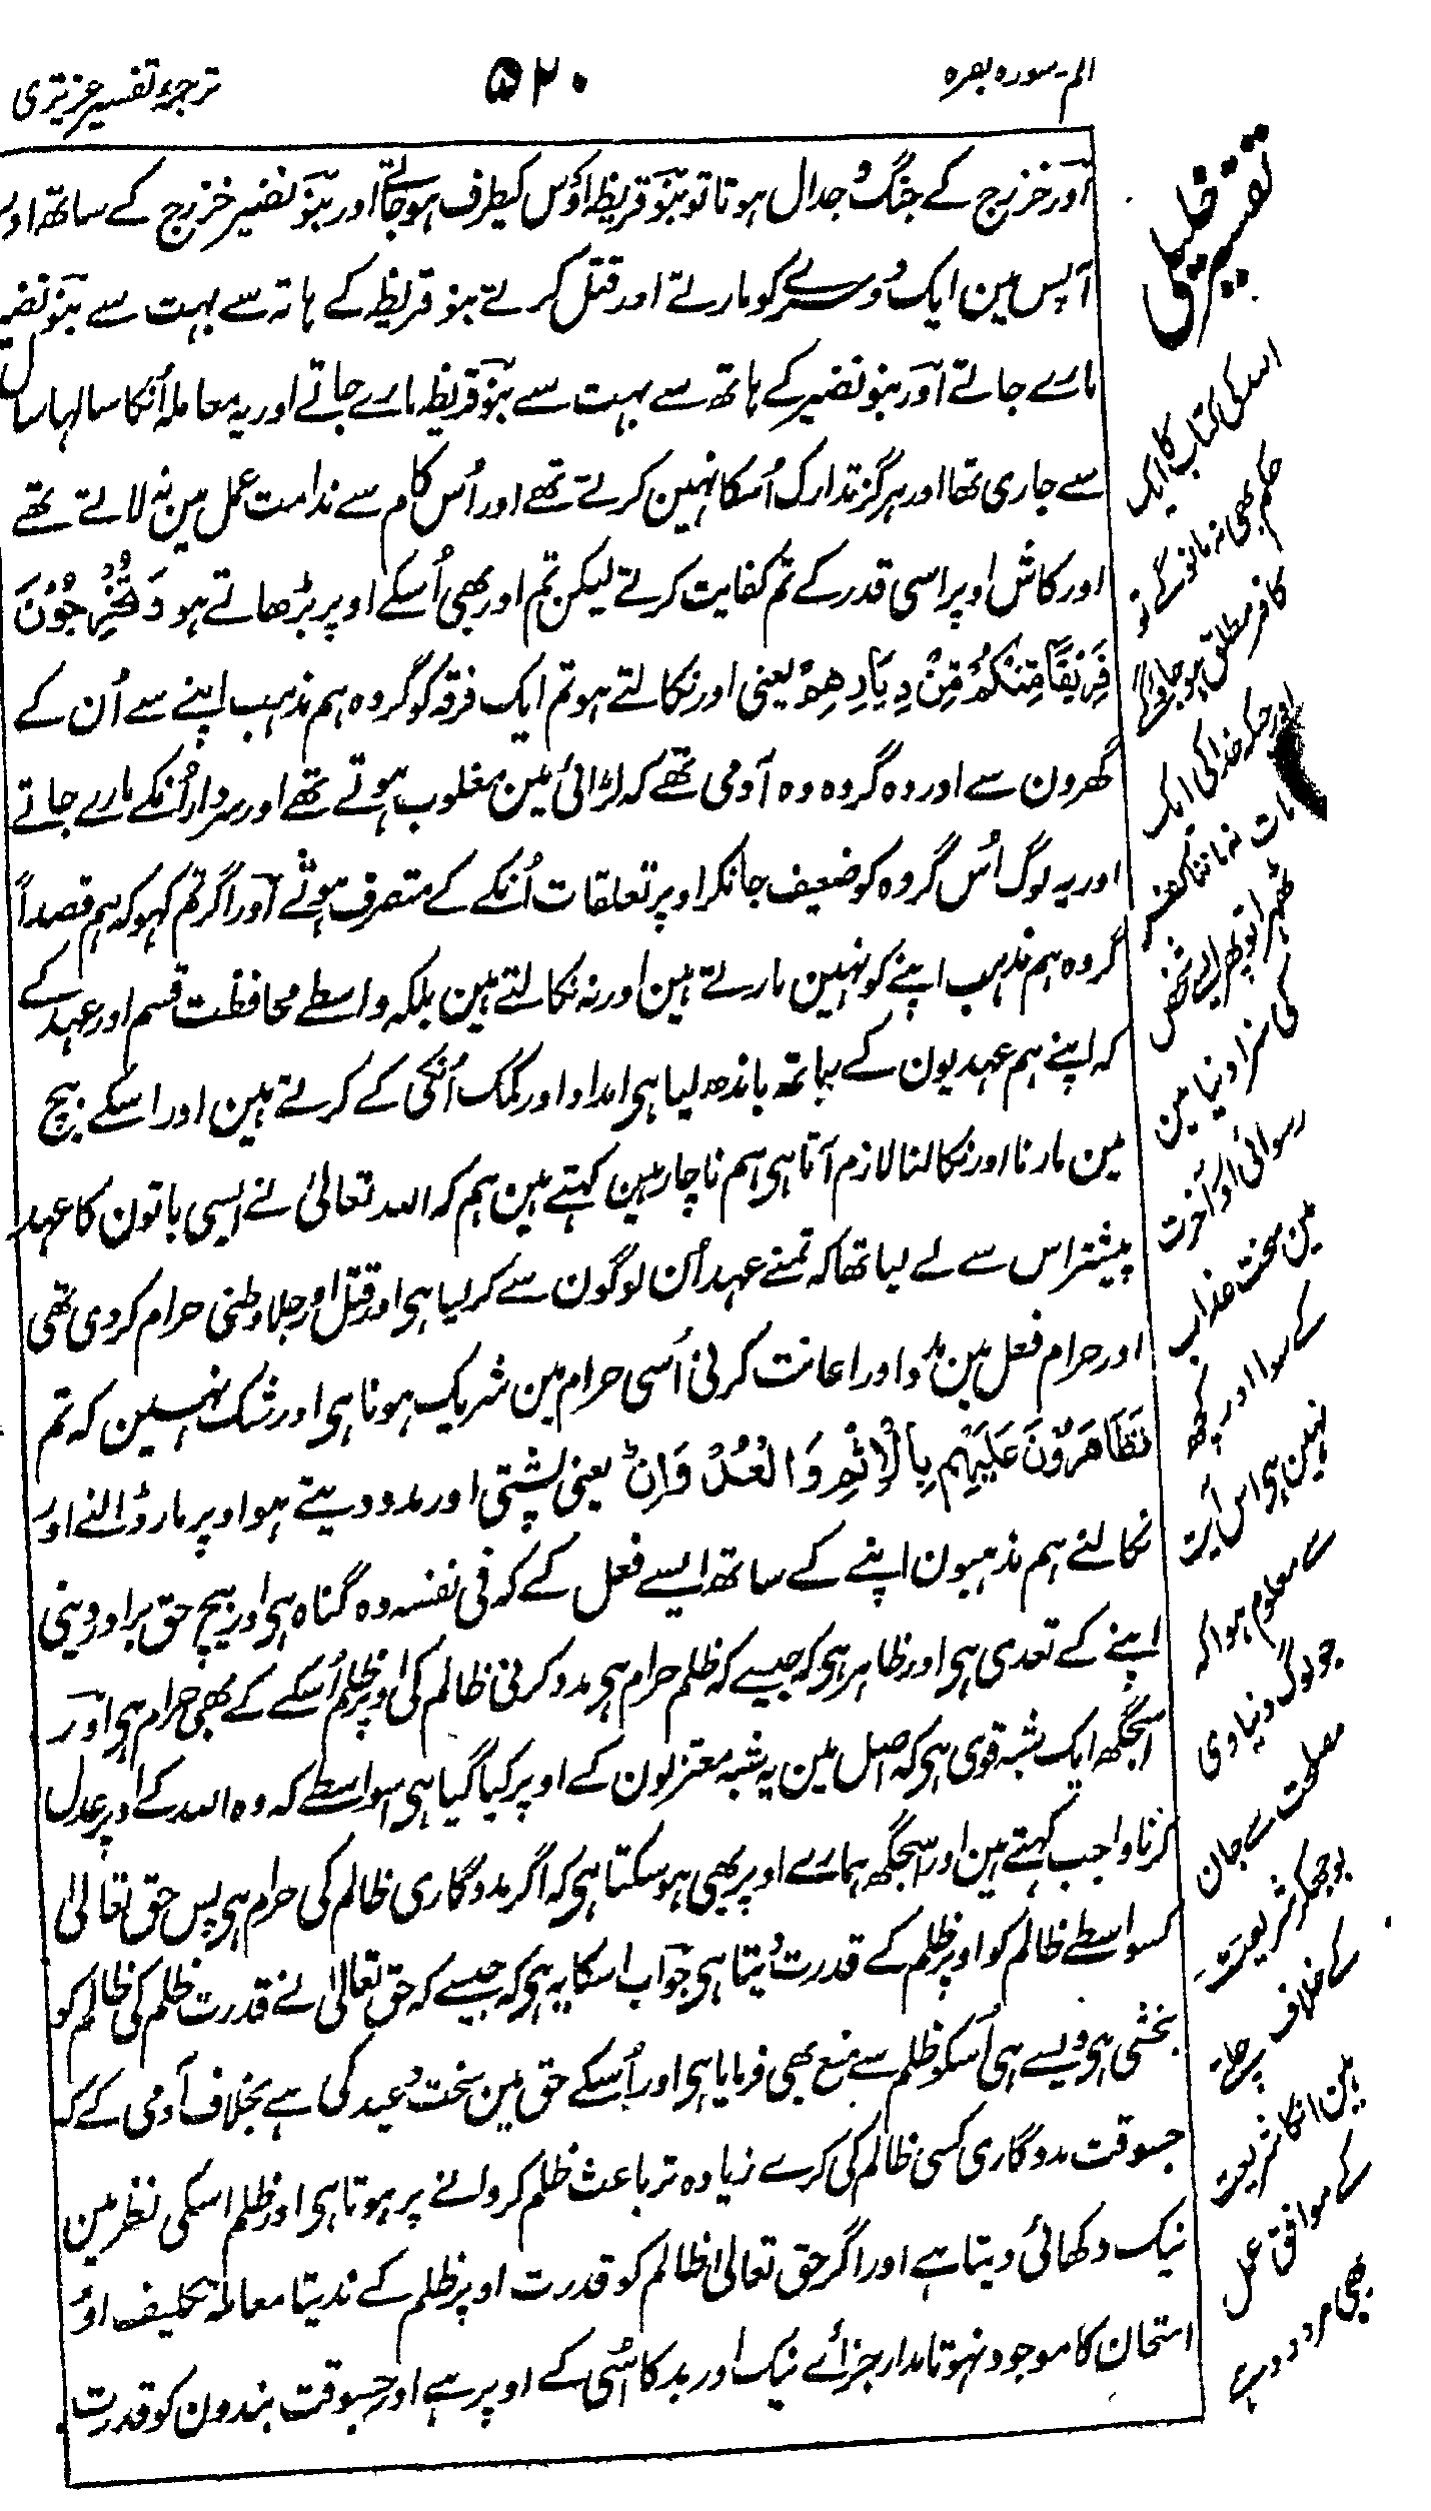 الم - سورہ بقرہ
۵۲۰
ترجمۂ تفسیر عزیزی
آور خزرج کے جنگ و جدال ہوتا تو بنو قریظہ اوس کیطرف ہو جاتے اور بنو نضیر خزرج کے ساتھ اور
آپس مین ایک دوسرے کو مارتے اور قتل کرتے بنو قریظہ کے ہاتہ سے بہت سے بنو نضیر
مارے جاتے آور بنو نضیر کے ہاتھ سے بہت سے بنو قریظہ مارے جاتے اور یہ معاملہ اُنکا سالہا سال
سے جاری تھا اور ہرگز تدارک اُسکا نہین کرتے تھے اور اُس کام سے ندامت عمل مین نہ لاتے تھے
اور کاش اوپر اسی قدر کے تم کفایت کرتے لیکن تم اور بھی اُسکے اوپر بڑھاتے ہو وَتُخْرِجُوْنَ
فَرِيْقًا مِّنْكُمْ مِّنْ دِيَارِهِمْ یعنی اور نکالتے ہو تم ایک فرقہ کو گروہ ہم مذہب اپنے سے اُن کے
گھرون سے اور وہ گروہ وہ آدمی تھے کہ لڑائی مین مغلوب ہوتے تھے اور سردار اُنکے مارے جاتے
اور یہ لوگ اُس گروہ کو ضعیف جانکر اوپر تعلقات اُنکے کے متصرف ہوتے آور اگر تم کہو کہ ہم قصداً
گروہ ہم مذہب اپنے کو نہین مارتے ہین اور نہ نکالتے ہین بلکہ واسطے محافظت قسم اور عہد کے
کہ اپنے ہم عہدیون کے ساتہ باندھ لیا ہی امداد اور کمک اُنکی کے کرتے ہین اور اسکے بیچ
مین مارنا اور نکالنا لازم آتا ہی ہم ناچار ہین کہتے ہین ہم کہ اللہ تعالیٰ نے ایسی باتون کا عہد
پیشتر اس سے لے لیا تھا کہ تمنے عہد اُن لوگون سے کر لیا ہی اور قتل اور جلاوطنی حرام کر دی تھی
اور حرام فعل مین مدد اور اعانت کرنی اُسی حرام مین شریک ہونا ہی اور شک نہین کہ تم
تَظَاهَرُوْنَ عَلَيْهِمْ بِالْاِثْمِ وَالْعُدْوَانِ یعنی پشتی اور مدد دیتے ہو اوپر مار ڈالنے اور
نکالنے ہم مذہبون اپنے کے ساتھ ایسے فعل کے کہ فی نفسہ وہ گناہ ہی اور بیچ حق برادر دینی
اپنے کے تعدی ہی اور ظاہر ہی کہ جیسے کہ ظلم حرام ہی مدد کرنی ظالم کی اوپر ظلم اُسکے کے بھی حرام ہی اور
اسجگھ ایک شبہ قوی ہی کہ اصل مین یہ شبہ معتزلون کے اوپر کیا گیا ہی اسواسطے کہ وہ اللہ کے اوپر عدل
کرنا واجب کہتے ہین اور اسجگھ ہمارے اوپر بھی ہو سکتا ہی کہ اگر مددگاری ظالم کی حرام ہی پس حق تعالیٰ
کسواسطے ظالم کو اوپر ظلم کے قدرت دیتا ہی جوآب اسکا یہ ہی کہ جیسے کہ حق تعالیٰ نے قدرت ظلم کی ظالم کو
بخشی ہی ویسے ہی اُسکو ظلم سے منع بھی فرمایا ہی اور اُسکے حق مین سخت وعید کی ہے بخلاف آدمی کے کہ
جسوقت مددگاری کسی ظالم کی کرے زیادہ تر باعث ظلم کروانے پر ہوتا ہی اور ظلم اسکی نظر مین
نیک دکھائی دیتا ہے اور اگر حق تعالیٰ ظالم کو قدرت اوپر ظلم کے ندیتا معاملہ تکلیف اور
امتحان کا موجود نہوتا مدار جزائے نیک اور بد کا اسی کے اوپر ہے اور جسوقت بندون کو قدرت
تفسیر خلیلی
اللہ کی کتاب کا ایک
حکم بھی نہ مانو گے تو
کافر مطلق ہو جاؤ گے
اور حکم خدا کی ایک
بات نہ ماننا کفر
ٹھہرا تو پھر ایسے شخص
کی سزا دنیا مین
رسوائی اور آخرت
مین سخت عذاب
کے سوا اور کچھ
نہین ہی اس آیت
سے معلوم ہوا کہ
جو لوگ دنیاوی
مصلحت سے جان
بوجھکر شریعت
کے خلاف پر چلتے
ہین انکا شریعت
کے موافق عمل
بھی مردود ہے